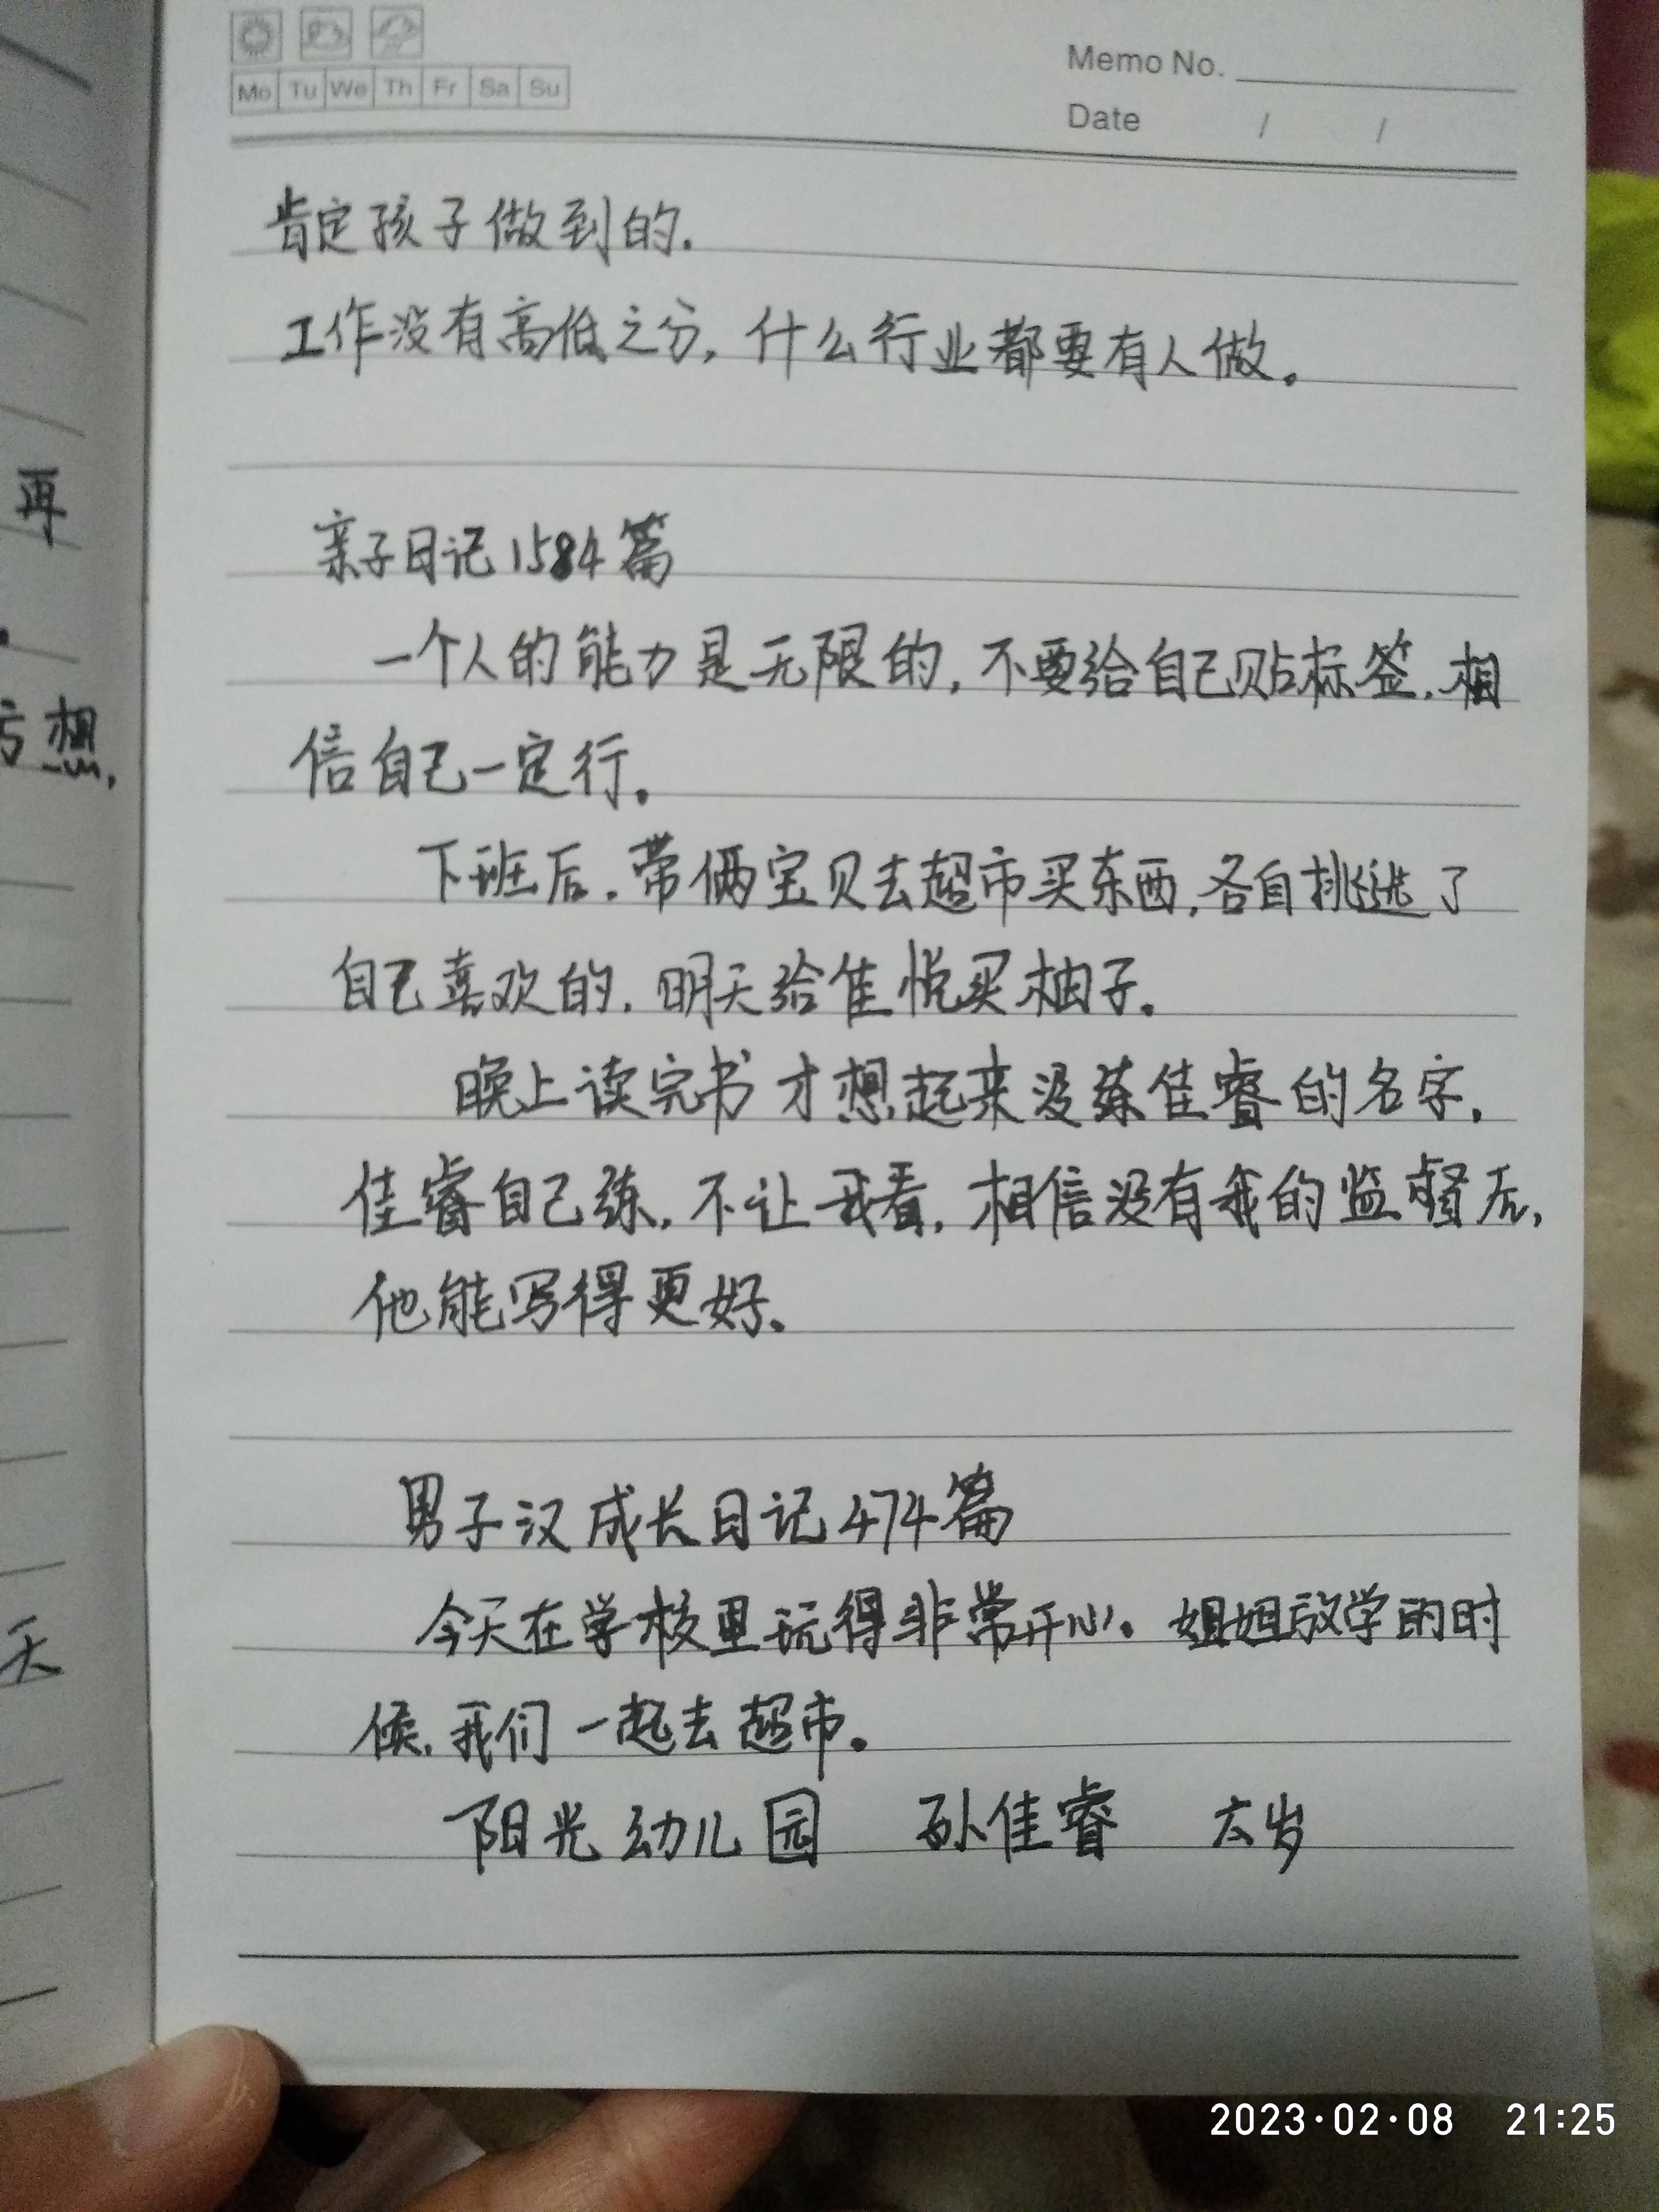 Mo Tu We Th Fr Sa Su
Memo No.
Date / /
肯定孩子做到的.
工作没有高低之分,什么行业都要有人做。
亲子日记1584篇
一个人的能力是无限的,不要给自己贴标签.相
信自己一定行。
下班后.带俩宝贝去超市买东西,各自挑选了
自己喜欢的.明天给佳悦买柚子。
晚上读完书才想起来没练佳睿的名字.
佳睿自己练.不让我看.相信没有我的监督后,
他能写得更好。
男子汉成长日记474篇
今天在学校里玩得非常开心。姐姐放学的时
候.我们一起去超市。
阳光幼儿园 孙佳睿 六岁
再
方想.
天
2023·02·08 21:25